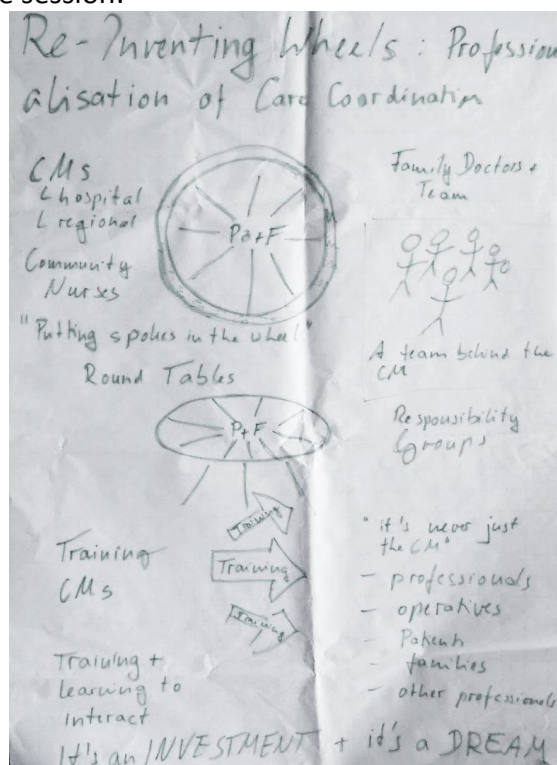 e session.
Re-Inventing Wheels : Profession
alisation of Care Coordination
CMs
L hospital
L regional
Community
Nurses
Pa+F
Family Doctors +
Team
"Putting spokes in the wheel"
A team behind the
CM
Round Tables
P+F
Responsibility
Groups
Training
Training
Training
Training
CMs
"it's never just
the CM"
- professionals
- operatives
- Patients
- families
- other professionals
Training +
learning to
interact
It's an INVESTMENT + it's a DREAM